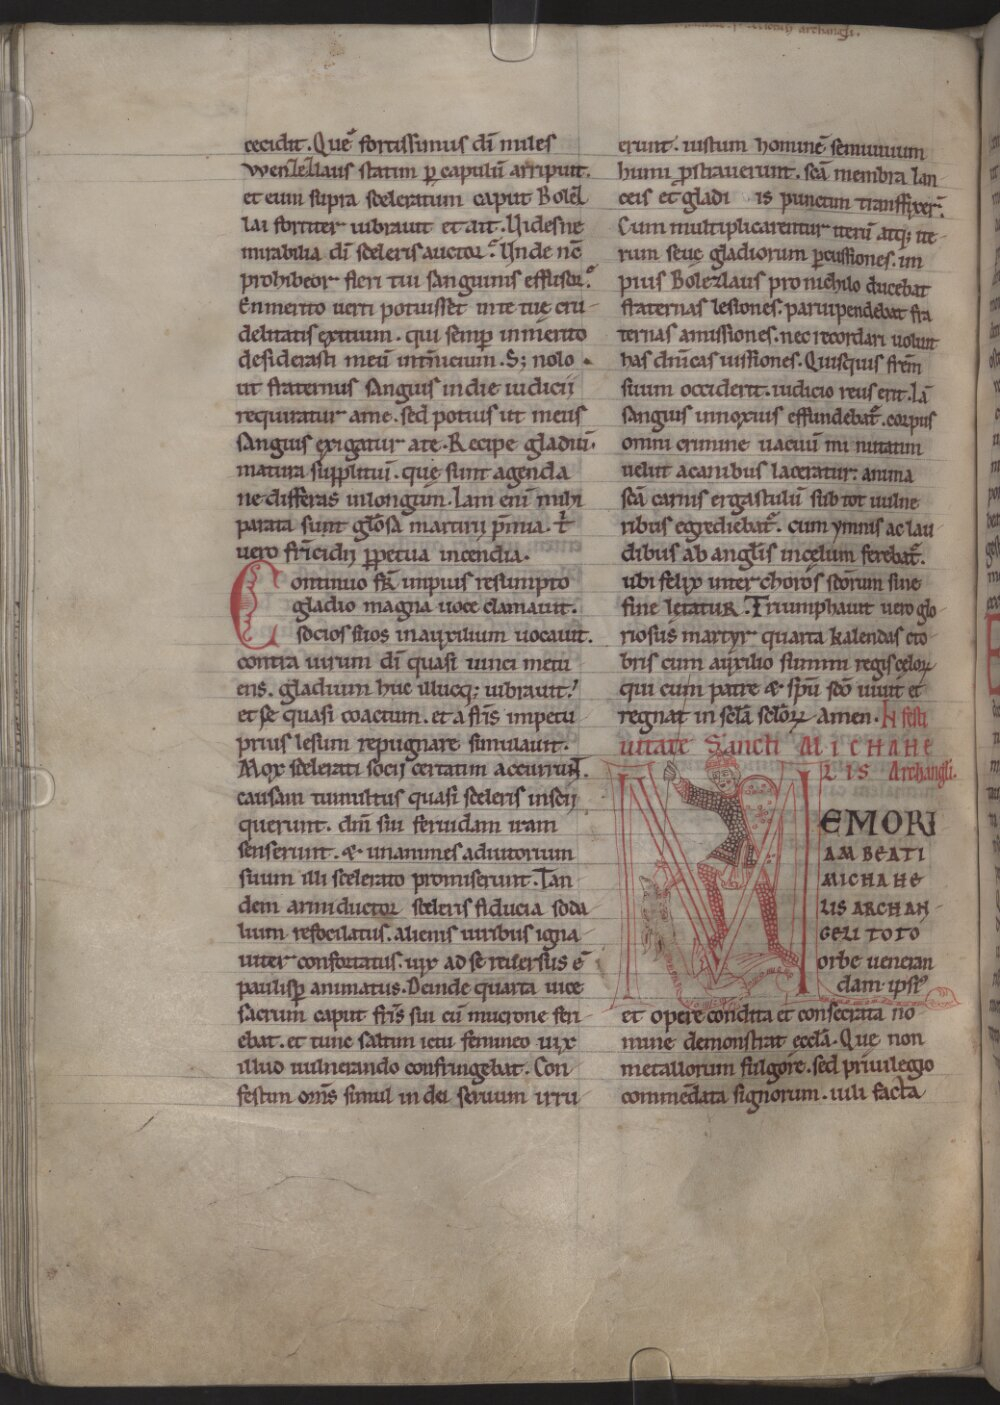 archangli.
cecidit. Quē fortissimus dī miles
Wenzezlaus statim p capulū arripuit.
et eum supra sceleratum caput Bolez
lai fortiter uibrauit et ait. Uidesne
mirabilia dī sceleris auctor. Unde nē
prohibeor fieri tui sanguinis effusor.
En merito uerti potuisset in te tue cru
delitatis exitium. qui semp inmerito
desiderasti meū intnicium. S; nolo
ut fraternus sanguis in die iudicij
requiratur a me. sed potius ut meus
sanguis exigatur a te. Recipe gladiū.
matura supplitiū. que sunt agenda
ne differas in longum. Iam enī mihi
parata sunt glosa martirij pmia. t
uero fricidij ppetua incendia.
Continuo fr impius resumpto
gladio magna uoce clamauit.
socios suos in auxilium uocauit.
contra uirum dī quasi uinci metu
ens. gladium huc illucq; uibrauit.
et se quasi coactum. et a fris impetu
prius lesum repugnare simulauit.
Mox scelerati socij certatim accurrunt.
causam tumultus quasi sceleris inscij
querunt. dnī sui feruidam iram
senserunt. & unanimes adiutorium
suum illi scelerato promiserunt. Tan
dem armiductor sceleris fiducia soda
lium refocilatus. alienis uiribus igna
uiter confortatus. uix ad se reuersus ē
paulisp animatus. Deinde quarta uice
sacrum caput fris sui cū mucrone feri
ebat. et tunc saltim ictu femineo uix
illud uulnerando confringebat. Con
festim oms simul in dei seruum irru
erunt. iustum hominē semiuiuum
humi pstrauerunt. scā membra lan
ceis et gladiis punctim transfixer.
Cum multiplicarentur iterū atq; ite
rum seue gladiorum pcussiones. im
pius Bolezlaus pro nichilo ducebat
fraternas lesiones. paruipendebat fra
ternas amissiones. nec recordari uoluit
has dnicas iussiones. Quisquis frem
suum occiderit. iudicio reus erit. Iā
sanguis innoxius effundebat. corpus
omni crimine uacuū mi nutatim
uelut a canibus laceratur. anima
scā carnis ergastulū sub tot uulne
ribus egrediebat. cum ymnis ac lau
dibus ab anglis in celum ferebat.
ubi felix inter choros scorum sine
fine letatur. Triumphauit uero glo
riosus martyr quarta kalendas octo
bris cum auxilio summi regis celoꝝ
qui cum patre & spū scō uiuit et
regnat in scla scloꝝ Amen. In festi
uitate Sancti MICHAHE
LIS Archangli.
MEMORI
AM BEATI
MICHAHE
LIS ARCHAN
GELI TOTO
orbe ueneran
dam. ipsi
et opere condita et consecrata no
mine demonstrat eccla. Que non
metallorum fulgore. sed priuilegio
commēdata signorum. uili facta